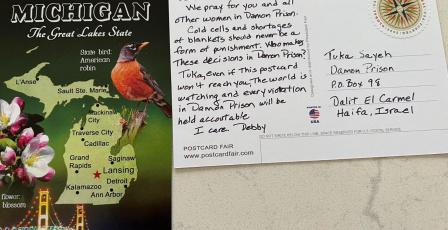 MICHIGAN
The Great Lakes State
State bird:
American
robin
L'Anse
Sault Ste. Marie
Mackinaw
City
Traverse City
Cadillac
Grand
Rapids
Saginaw
Lansing
Kalamazoo
Detroit
Ann Arbor
flower:
blossom
We pray for you and all
other women in Damon Prison.
Cold cells and shortages
of blankets should never be a
form of punishment. Who makes
these decisions in Damon Prison?
Tuka, even if this postcard
won't reach you, The world is
watching and every violation
in Damon Prison will be
held accountable
I care. Debby
POSTCARD FAIR
www.postcardfair.com
USA
Tuka Sayeh
Damon Prison
P.O. Box 98
Dalit El Carmel
Haifa, Israel